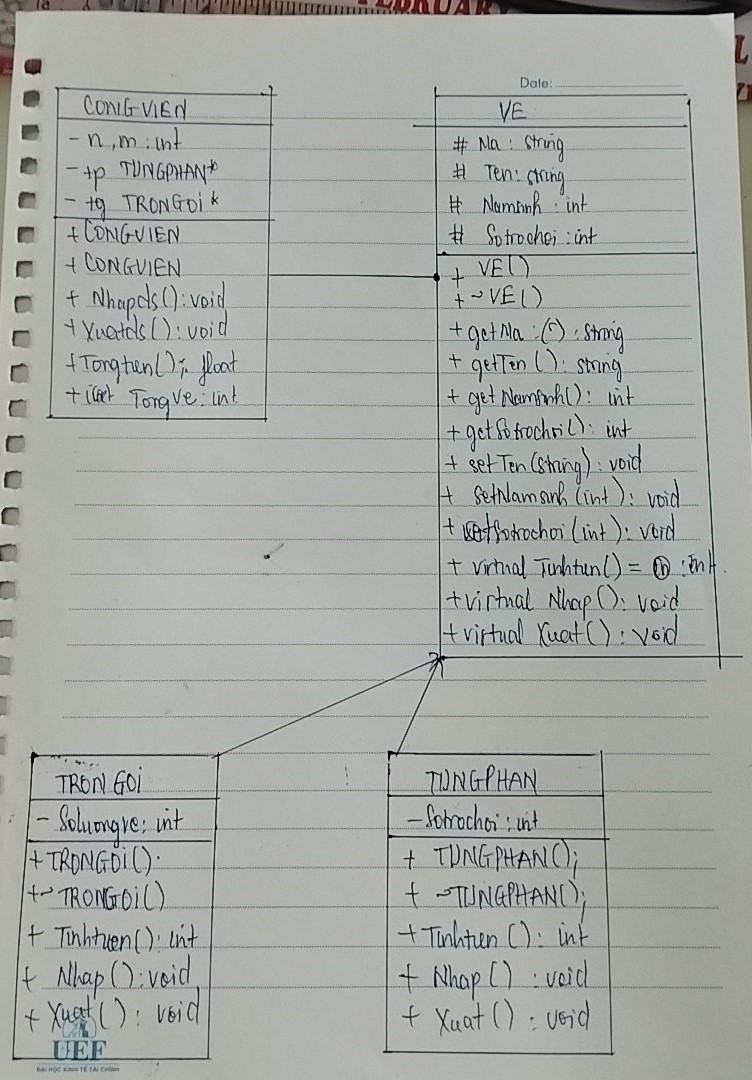 FEBRUARY
Date:
CONGVIEN
- n, m : int
- tp TUNGPHAN*
- tg TRONGOI *
+ CONGVIEN
+ CONGVIEN
+ Nhapds() : void
+ Xuatds() : void
+ Tongtien() ; float
+ Tongve : int
VE
# Ma : string
# Ten : string
# Namsinh : int
# Sotrochoi : int
+ VE()
+ ~VE()
+ getMa : () : string
+ getTen () : string
+ getNamsinh() : int
+ getSotrochoi() : int
+ setTen (string) : void
+ setNamsinh (int) : void
+ setSotrochoi (int) : void
+ virtual Tinhtien() = : int.
+ virtual Nhap () : void
+ virtual Xuat () : void
TRONGOI
- Soluongve : int
+ TRONGOI()
+ ~ TRONGOI()
+ Tinhtien() : int
+ Nhap () : void
+ Xuat () : void
TUNGPHAN
- Sotrochoi : int
+ TUNGPHAN();
+ ~TUNGPHAN();
+ Tinhtien () : int
+ Nhap () : void
+ Xuat () : void
UEF
ĐẠI HỌC KINH TẾ TÀI CHÍNH